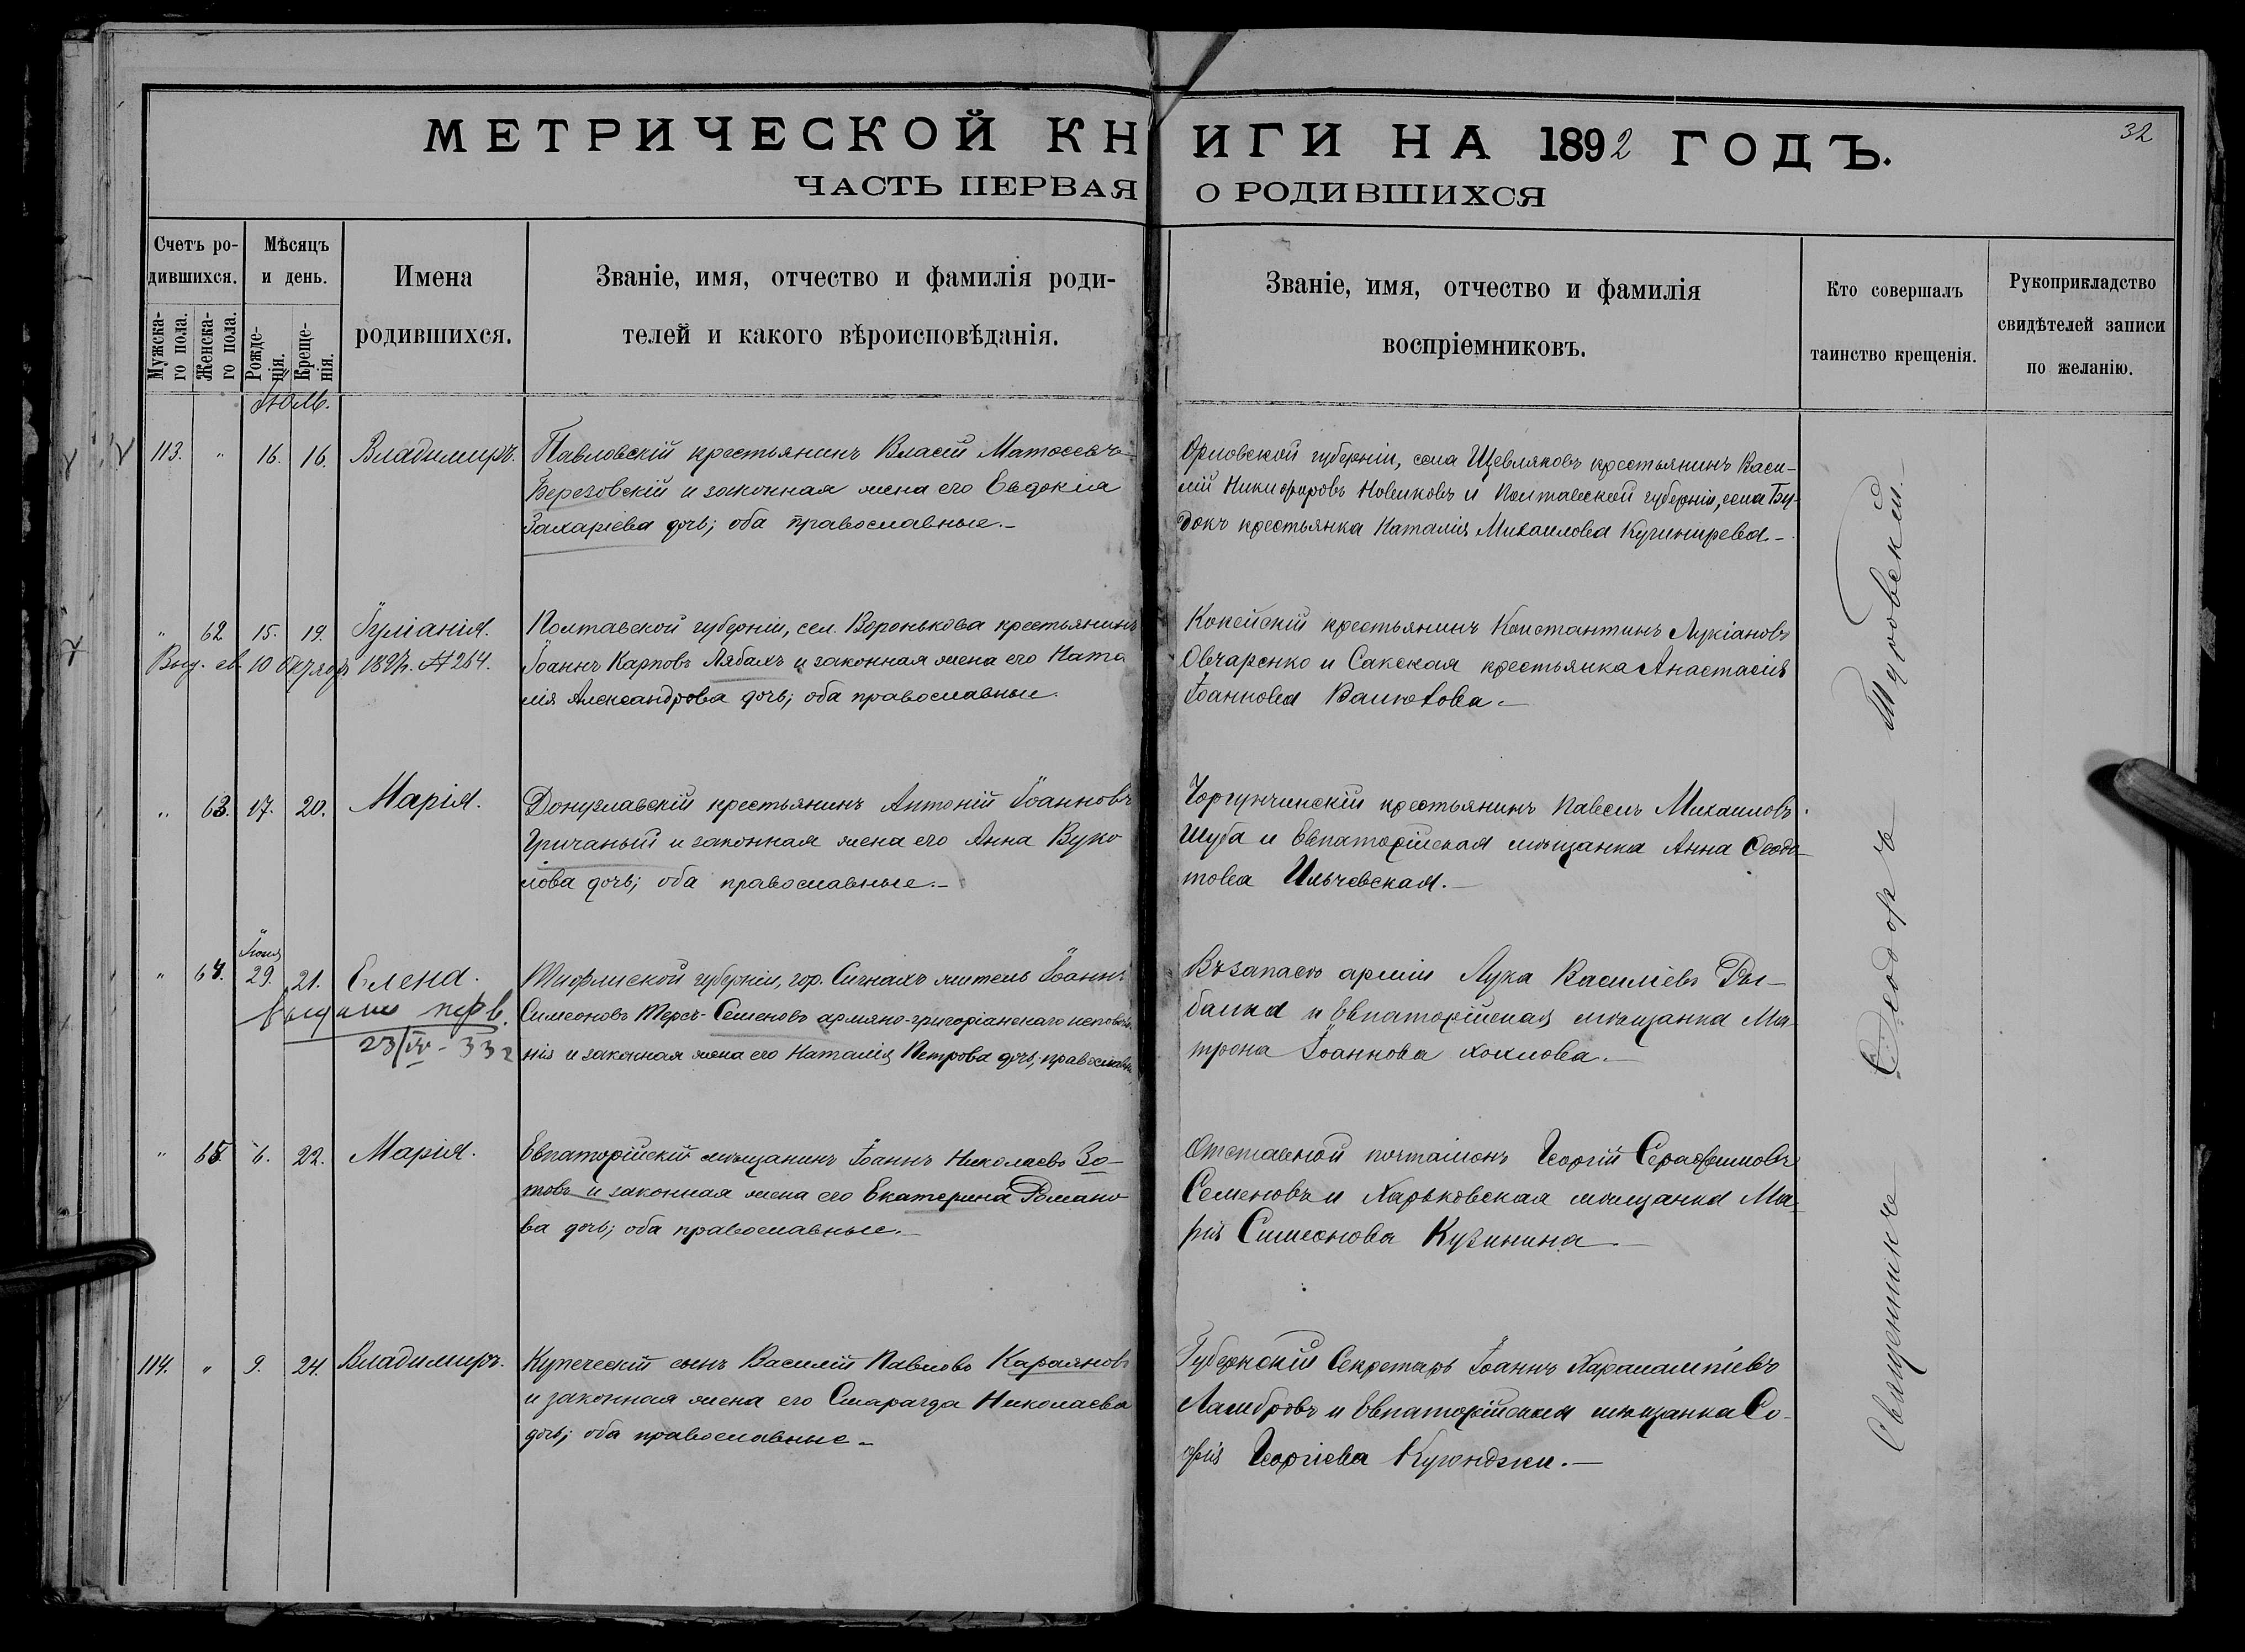 МЕТРИЧЕСКОЙ КНИГИ НА 1892 ГОДЪ.
32
ЧАСТЬ ПЕРВАЯ О РОДИВШИХСЯ
Счетъ ро-
дившихся.
Мужска-
го пола.
Женска-
го пола.
Мѣсяцъ
и день.
Рожде-
нія.
Креще-
нія.
Имена
родившихся.
Званіе, имя, отчество и фамилія роди-
телей и какого вѣроисповѣданія.
Званіе, имя, отчество и фамилія
воспріемниковъ.
Кто совершалъ
таинство крещенія.
Рукоприкладство
свидѣтелей записи
по желанію.
Іюль.
113. " 16. 16. Владимиръ.
Павловскій крестьянинъ Власій Матѳеевъ
Березовскій и законная жена его Евдокія
Захаріева дочь; оба православные.-
Орловской губерніи, села Щевляковъ крестьянинъ Васи-
лій Никифоровъ Новиковъ и Полтавской губерніи, села Бу-
докъ крестьянка Наталія Михаилова Кучинирева.-
" 62 15. 19. Іуліанія.
Выд. св. 10 Октяб. 1897г. № 264.
Полтавской губерніи, сел. Воронькова крестьянинъ
Іоаннъ Карповъ Лябахъ и законная жена его Ната
лія Александрова дочь; оба православные.
Кокейскій крестьянинъ Константинъ Лукіановъ
Овчаренко и Сакская крестьянка Анастасія
Іоаннова Валютова.-
" 63. 17. 20. Марія.
Донузлавскій крестьянинъ Антоній Іоанновъ
Гричаный и законная жена его Анна Вуко
лова дочь; оба православные.-
Чоргунчинскій крестьянинъ Павелъ Михаиловъ
Шуба и Евпаторійская мѣщанка Анна Ѳеодо-
това Ильчевская.-
" 64. Іюня 29. 21. Елена.
23/IV-33г
Тифлиской губерніи, гор. Сигнахъ житель Іоаннъ
Симеоновъ Теръ-Семеновъ армяно-григоріанскаго исповѣда
нія и законная жена его Наталія Петрова дочь; православн.
Въ запасѣ арміи Лука Василіевъ Ры-
балка и Евпаторійская мѣщанка Ма-
трона Іоаннова Хохлова.-
" 65. 6. 22. Марія.
Евпаторійскій мѣщанинъ Іоаннъ Николаевъ Зо-
товъ и законная жена его Екатерина Романо
ва дочь; оба православные.-
Отставной почталіонъ Георгій Серафимовъ
Семеновъ и Харьковская мѣщанка Ма-
рія Симеонова Кузинина.-
114. " 9. 24. Владимиръ.
Купеческій сынъ Василій Павловъ Караяновъ
и законная жена его Смарагда Николаева
дочь; оба православные.-
Губернскій Секретарь Іоаннъ Харалампіевъ
Ламбровъ и Евпаторійская мѣщанка Со-
фія Георгіева Куюнджи.-
Священникъ Ѳеодоръ Туровскій.